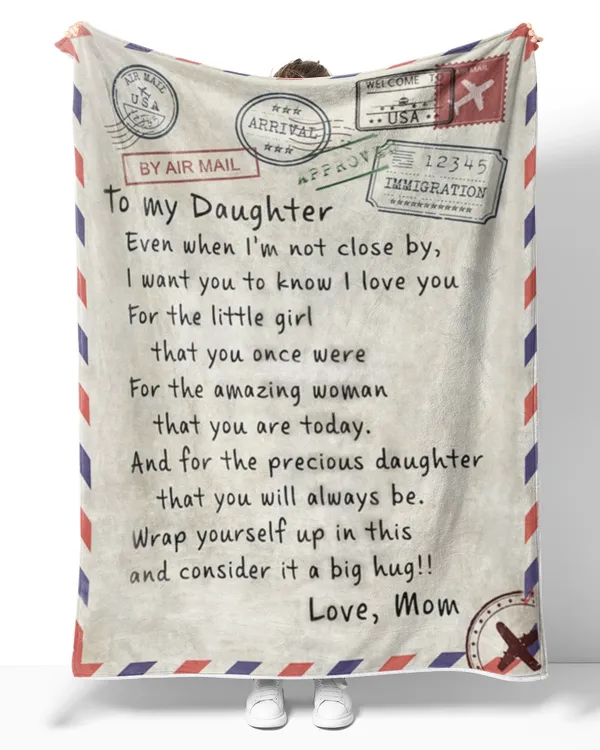 AIR MAIL
USA
ARRIVAL
WELCOME TO
USA
AIR MAIL
BY AIR MAIL
APPROVED
12345
IMMIGRATION
To my Daughter
Even when I'm not close by,
I want you to know I love you
For the little girl
that you once were
For the amazing woman
that you are today.
And for the precious daughter
that you will always be.
Wrap yourself up in this
and consider it a big hug!!
Love, Mom